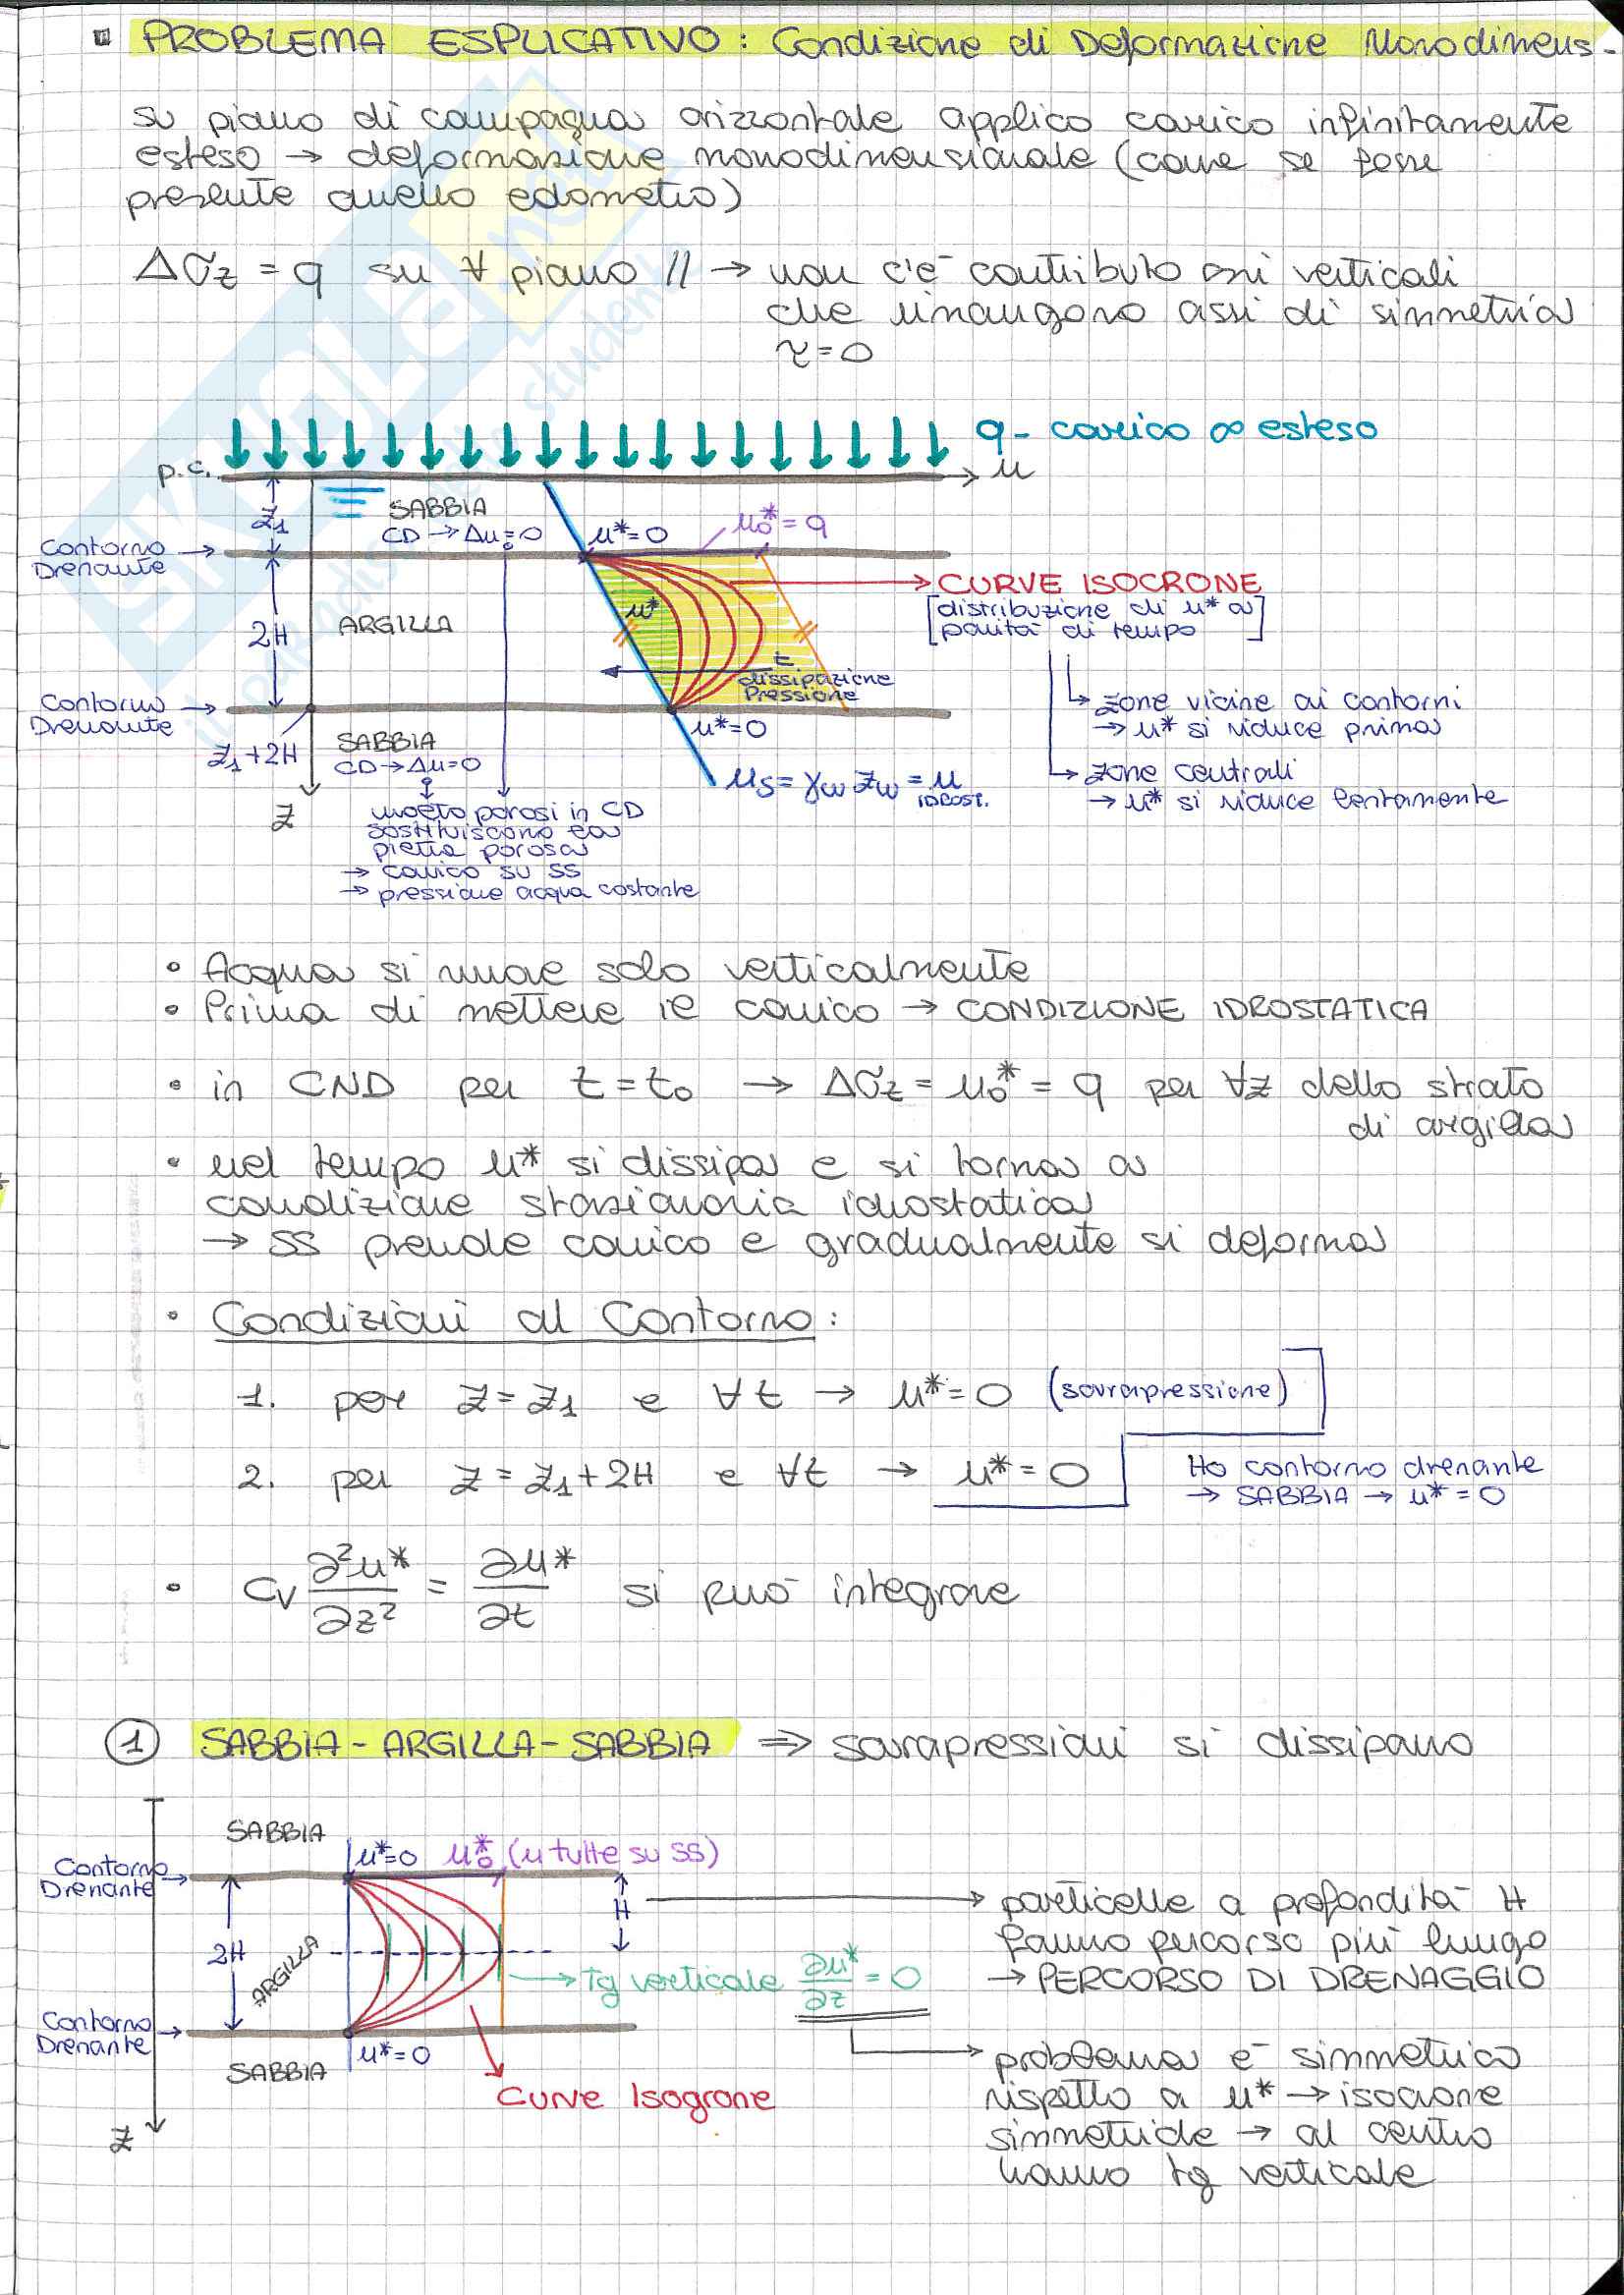 PROBLEMA ESPLICATIVO: Condizione di Deformazione Monodimens.
su piano di campagna orizzontale applico carico infinitamente
esteso → deformazione monodimensionale (come se fosse
presente anello edometro)
Δσz = q su ∀ piano // → non c'è contributo
che rimangono assi di simmetria
τ=0
q - carico ∞ esteso
p.c.
u
z1
SABBIA
CD → Δu=0
u*=0
u0*=q
Contorno
Drenante
CURVE ISOCRONE
[distribuzione di u* a
parità di tempo]
2H
ARGILLA
u*
t
dissipazione
Pressione
Contorno
Drenante
zone vicine ai contorni
→ u* si riduce prima
z1+2H
SABBIA
CD→Δu=0
u*=0
zone centrali
→ u* si riduce lentamente
us = γw zw = u
IDROST.
z
molto porosi in CD
sostituiscono la
pietra porosa
→ carico su SS
→ pressione acqua costante
• Acqua si muove solo verticalmente
• Prima di mettere il carico → CONDIZIONE IDROSTATICA
• in CND per t=t0 → Δσz = u0* = q per ∀z dello strato
di argilla
• nel tempo u* si dissipa e si torna a
condizione stazionaria idrostatica
→ SS prende carico e gradualmente si deforma
• Condizioni al Contorno:
1. per z=z1 e ∀t → u*=0 (sovrapressione)
2. per z=z1+2H e ∀t → u*=0
Ho contorno drenante
→ SABBIA → u*=0
• cv ∂²u*/∂z² = ∂u*/∂t si può integrare
1 SABBIA-ARGILLA-SABBIA ⇒ sovrapressioni si dissipano
SABBIA
Contorno
Drenante
u*=0 u0* (u tutte su SS)
H
particelle a profondità H
fanno percorso più lungo
→ PERCORSO DI DRENAGGIO
2H
ARGILLA
→ tg verticale ∂u*/∂z = 0
Contorno
Drenante
SABBIA
u*=0
Curve Isogrone
z
problema è simmetrico
rispetto a u* → isocrone
simmetriche → al centro
hanno tg verticale